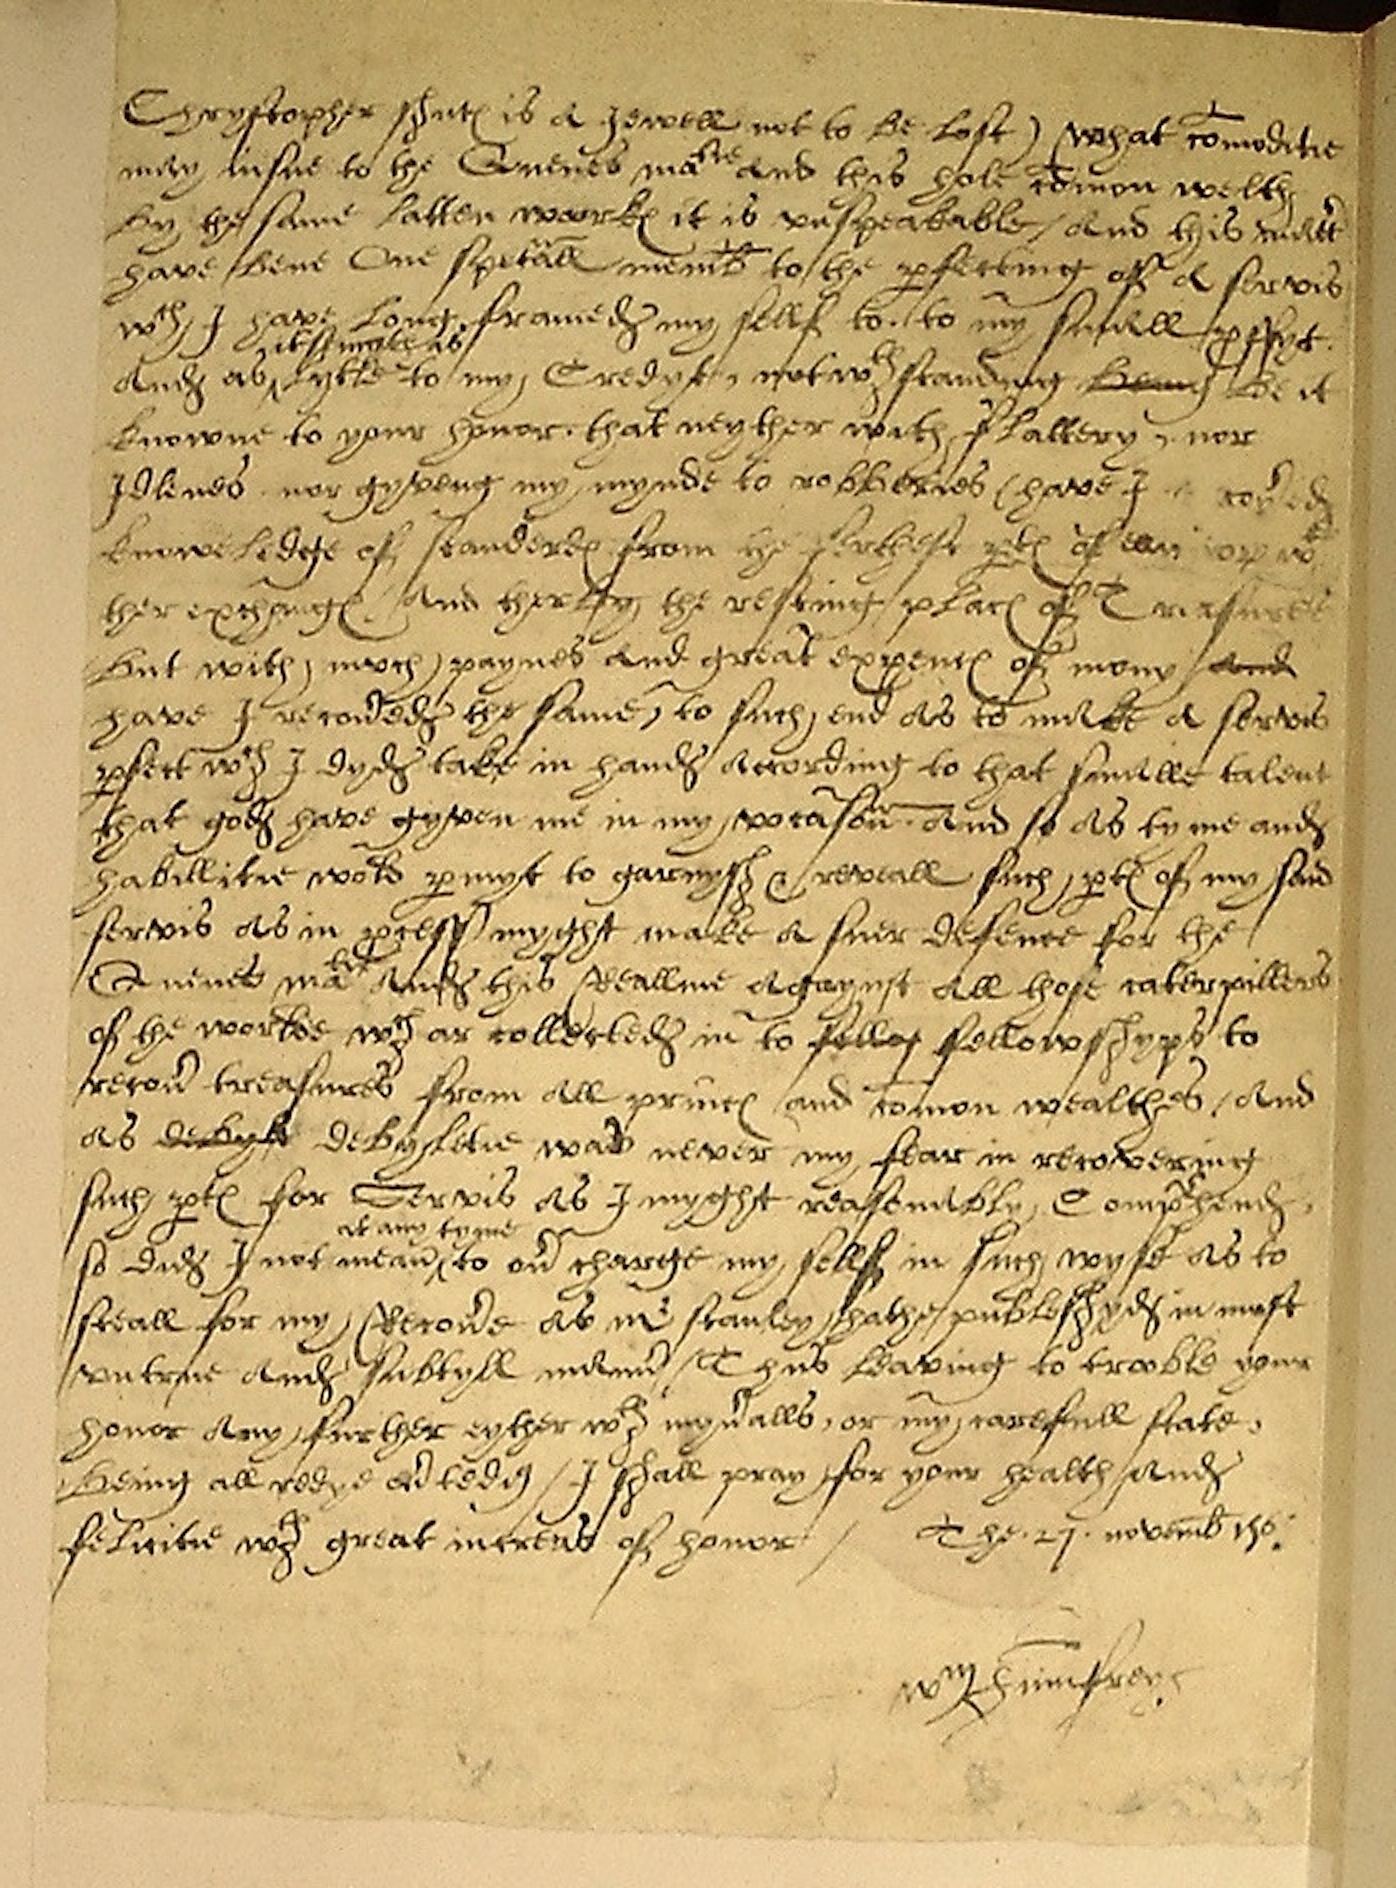 Chrystopher shutz is a Jewell not to be lost) what com̄oditie
may insue to the Quenes ma^tie and this hole com̄on welth
by the same latten workes it is unspeakable / And this matt
have bene One speciall memb to the pfecting of a servis
w^ch I have long framed my sellf to. to my small proffyt.
And as ^itt smale as lytle to my Credyt, notw^thstanding being be it
knowne to your honor. that neyther with flattery, nor
Idlenes nor gyveng my mynde to robberies (have I
knowledge of standerds from the ferthest ptes of
ther exchange / And therby the resting place of Treasures
But with much paynes and great expences of mony and
have I recoūed the same, to such end as to make a servis
pfect w^ch I dyd take in hand According to that smalle talent
that god have gyven me in my vocasion. And so as tyme and
habillitie wold pmyt to garnysh & reveall such ptes of my said
servis as in processe myght make a suer defence for the
Quenes ma^tie And this Reallme Agaynst all those caterpillers
of the worlde w^ch ar collected in to fellos fellowshyps to
recoū treasures from all princes and com̄on wealthes / And
as debylt debyletie was never my fear in recovering
such ptes for Servis as I myght reasonably Comp^rhend,
so did I not mean ^at any tyme to oū charge my sellf in such wyse as to
steall for my Recoūe as m^r stanley hathe publeshyd in most
untrue And subtyll manner / Thus leaving to troble your
honor Any further eyther w^th mynūalls, or my carefull state,
Being all redye / I shall pray for your health And
felicitie w^th great increas of honor / The. 27. novemb 156
W^m humfrey